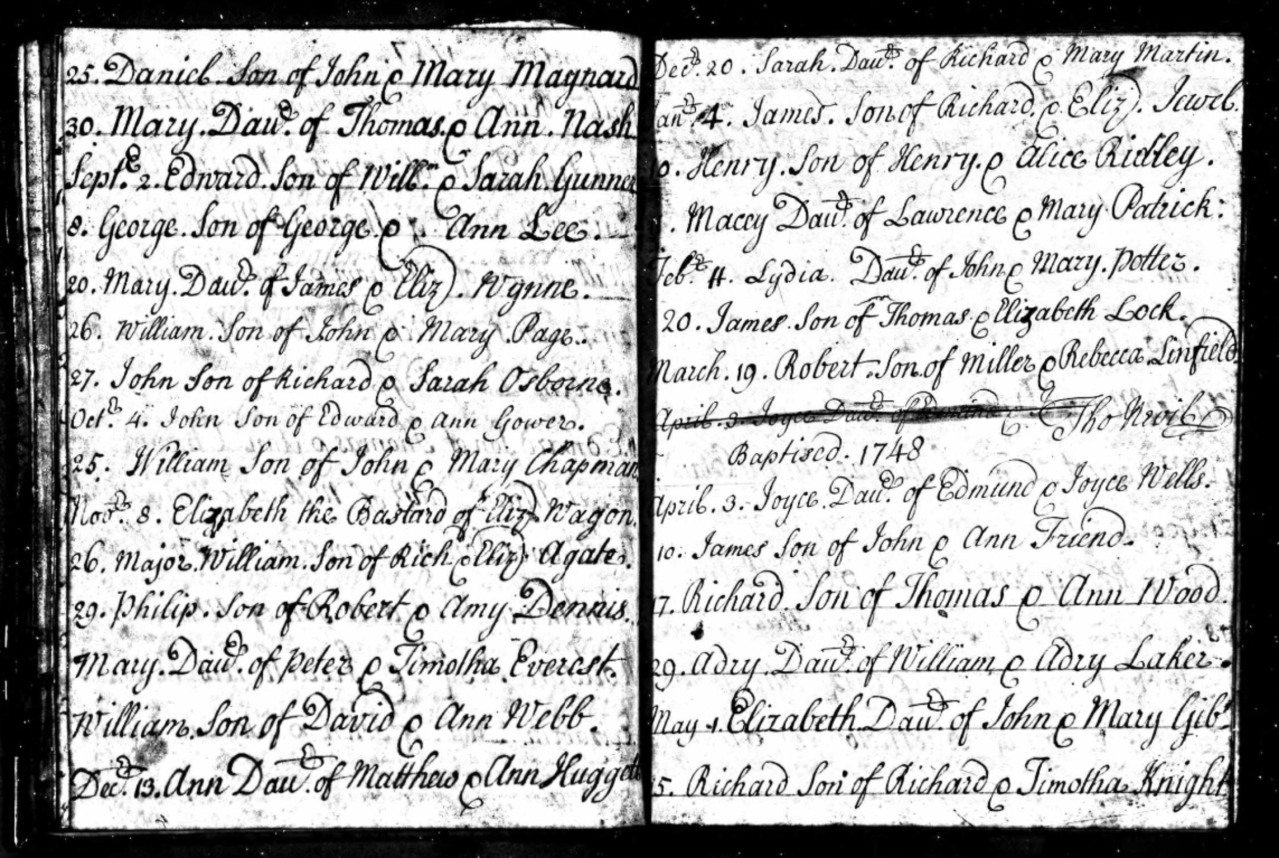 25. Daniel Son of John & Mary Magnard
30. Mary. Dau.r of Thomas. & Ann. Nash
Sept.r 2. Edward. Son of Will.m & Sarah. Gunner
8. George. Son of George. & Ann Lee.
20. Mary. Dau.r of James & Eliz). Wynne.
26. William. Son of John & Mary Page.
27. John Son of Richard & Sarah Osborne.
Oct.r 4. John Son of Edward & Ann Gower.
25. William Son of John & Mary Chapman
Nov.r 8. Elizabeth the Bastard of Eliz) Wagon.
26. Major. William. Son of Rich & Eliz) Agate.
29. Philip. Son of Robert & Amy Dennis.
Mary. Dau.r of Peter & Timotha Everest.
William. Son of David & Ann Webb.
Dec.r 13. Ann Dau.r of Matthew & Ann Huggett
Dec.r 20. Sarah. Dau.r of Richard & Mary Martin.
Jan.r 4. James. Son of Richard. & Eliz). Jewel.
Henry. Son of Henry. & Alice Ridley.
Macey Dau.r of Lawrence & Mary Patrick:
Feb.r 4. Lydia. Dau.r of John & Mary. Potter.
20. James. Son of Thomas & Elizabeth Lock.
March. 19. Robert. Son of Miller & Rebecca Linfield.
April. 3. Joyce Dau.r of & Tho Nevil
Baptised. 1748
April. 3. Joyce. Dau.r of Edmund & Joyce Wells.
10. James Son of John & Ann Friend.
17. Richard. Son of Thomas & Ann Wood.
29. Adry. Dau.r of William & Adry Laker.
May 1. Elizabeth Dau.r of John & Mary Gib.s
15. Richard Son of Richard & Timotha Knight